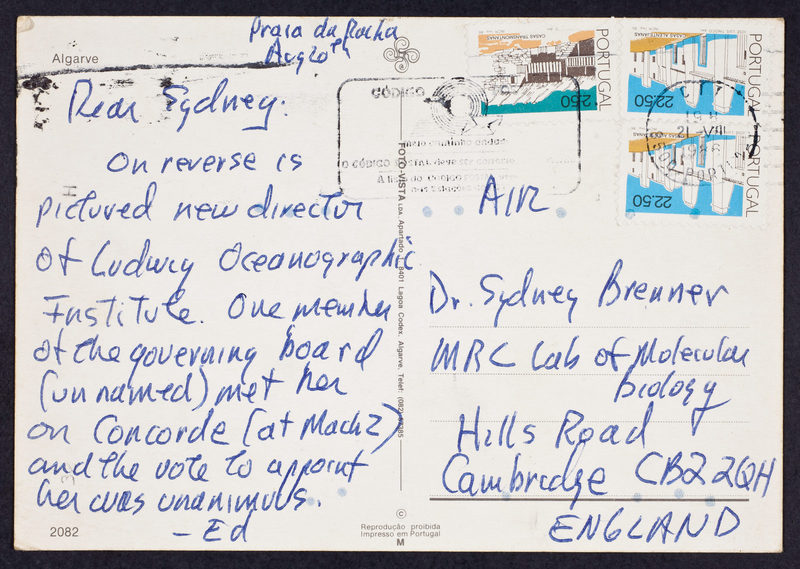 Algarve
Praia da Rocha
Aug 20th
Dear Sydney.
On reverse is
pictured new director
of Ludwig Oceanographic
Institute. One member
of the governing board
(unnamed) met her
on Concorde (at Mach 2)
and the vote to appoint
her was unanimus.
- Ed
2082
CÓDIGO
O CÓDIGO POSTAL deve ser
FOTO-VISTA LDA. Apartado 8401 Lagoa Codex, Algarve, Telef. (082)
©
Reprodução proibida
Impresso em Portugal
M
CASAS TRANSMONTANAS
PORTUGAL
22.50
CASAS ALENTEJANAS
PORTUGAL
22.50
PORTUGAL
22.50
CTT
21-VIII
1986
AIR
Dr. Sydney Brenner
MRC Lab of Molecular
Biology
Hills Road
Cambridge CB2 2QH
ENGLAND